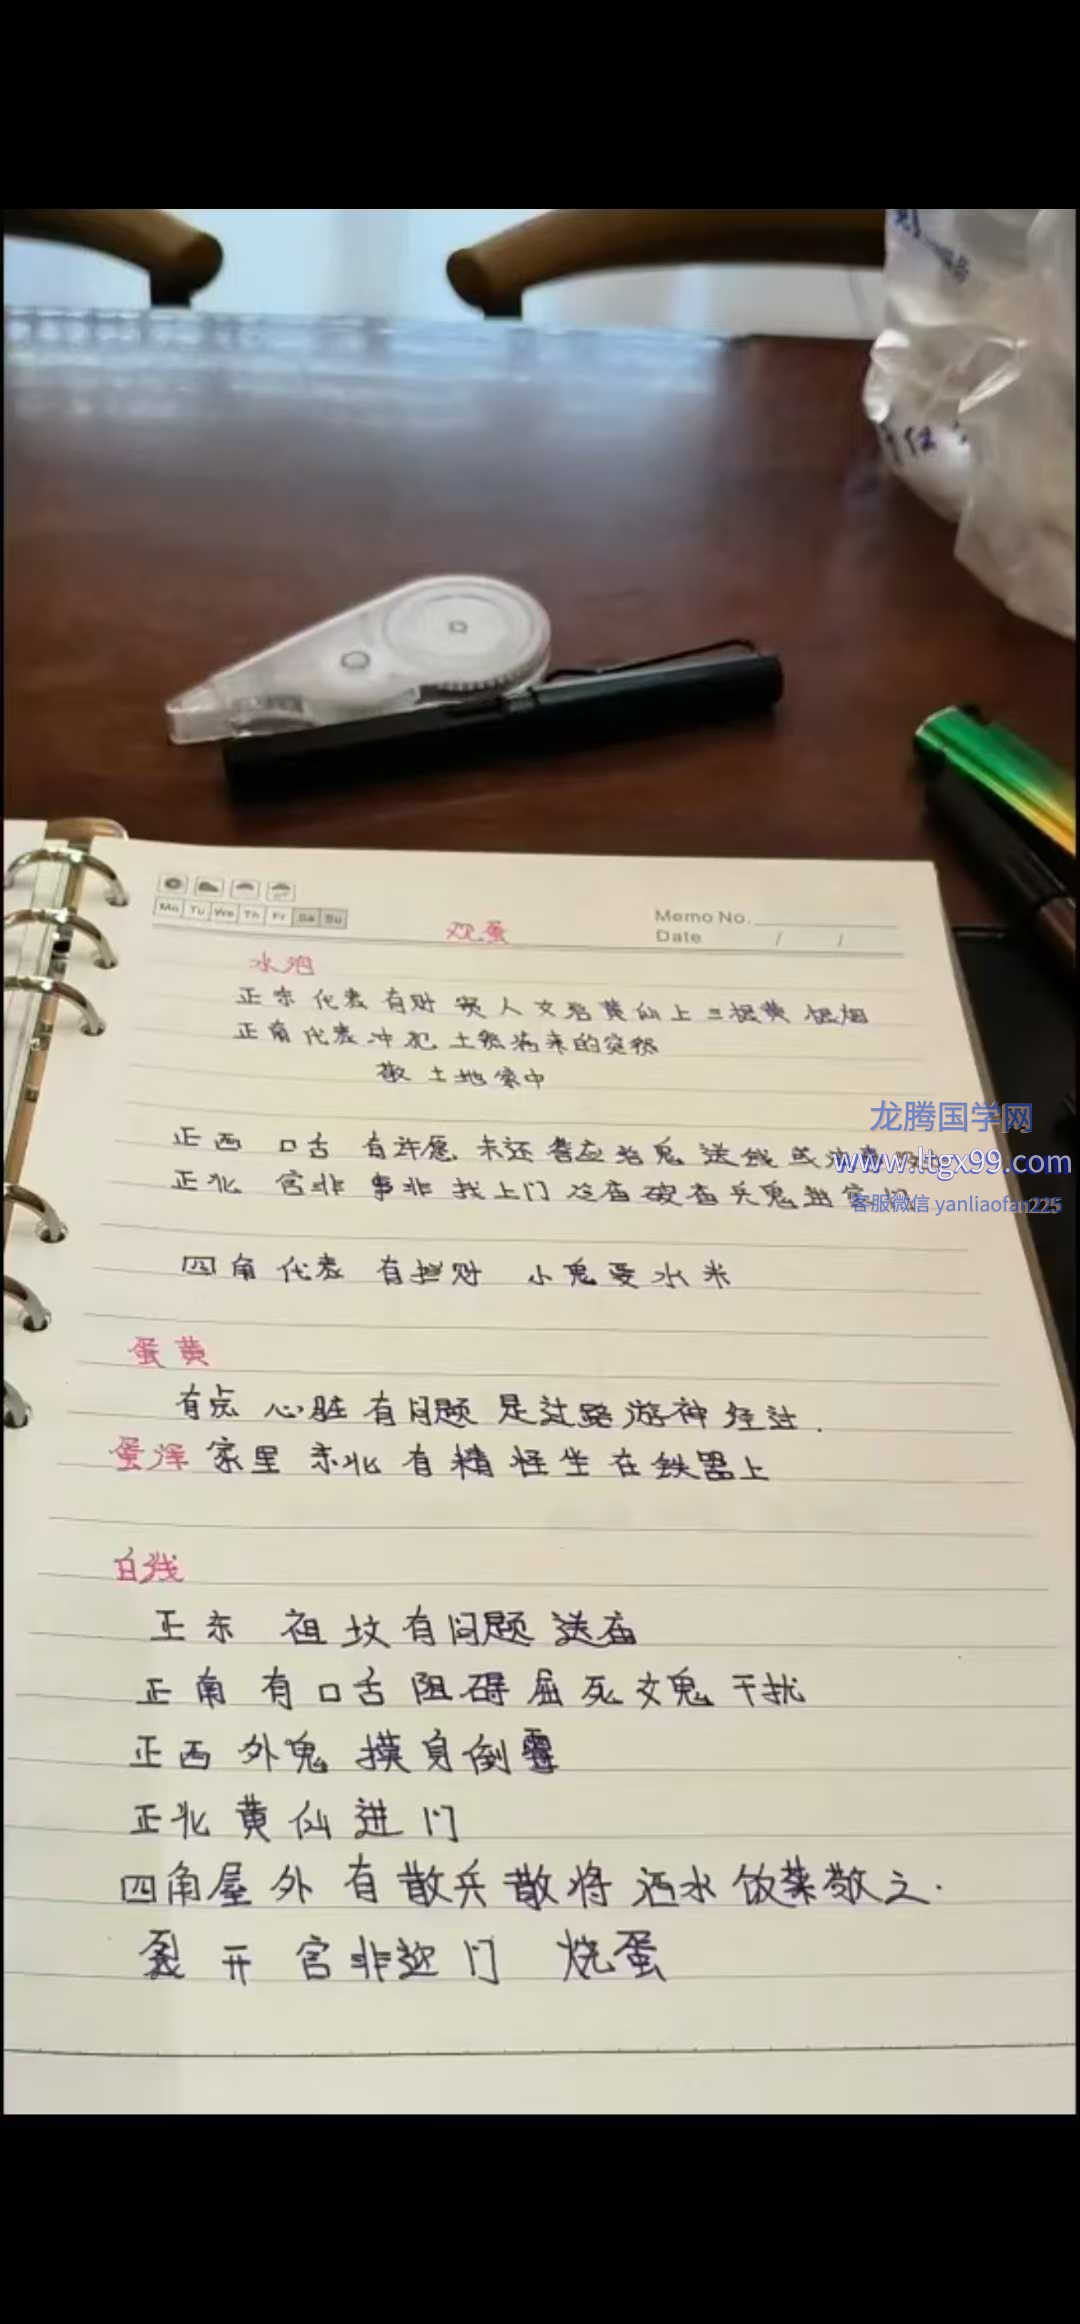 Mo Tu We Th Fr Sa Su
Memo No.
Date / /
观蛋
水泡
正东代表有财 贵人 文昌黄仙上三根黄 根烟
正南代表冲犯土煞
敬土地家中
正西 口舌 有许愿未还 鬼 送钱或
正北 官非 事非找上门 冷庙破庙兵鬼进家
四角代表 有挡财 小鬼要水米
蛋黄
有点 心脏有问题 是过路游神经过.
蛋浑 家里东北有精怪坐在铁器上
白线
正东 祖坟有问题 送庙
正南 有口舌阻碍屈死女鬼干扰
正西 外鬼 摸身倒霉
正北 黄仙进门
四角屋外 有散兵散将 洒水饭菜敬之.
裂开 官非迎门 烧蛋
龙腾国学网
www.ltgx99.com
客服微信 yanliaofan225